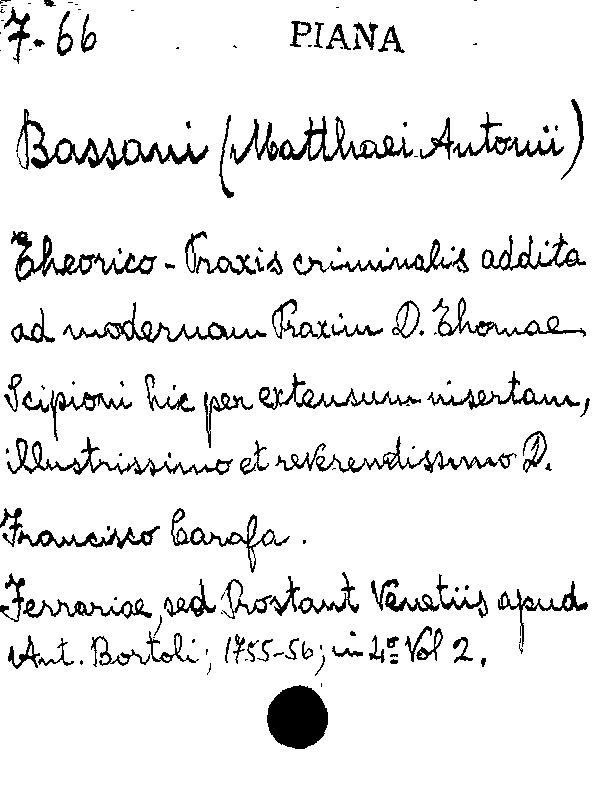 7-66 PIANA
Bassani (Matthaei Antonii)
Theorico - Praxis criminalis addita
ad modernam Praxim D. Thomae
Scipioni hic per extensum insertam,
illustrissimo et reverendissimo D.
Francisco Carafa.
Ferrariae, sed Prostant Venetiis apud
Ant. Bortoli; 1755-56; in 4º Vol 2.